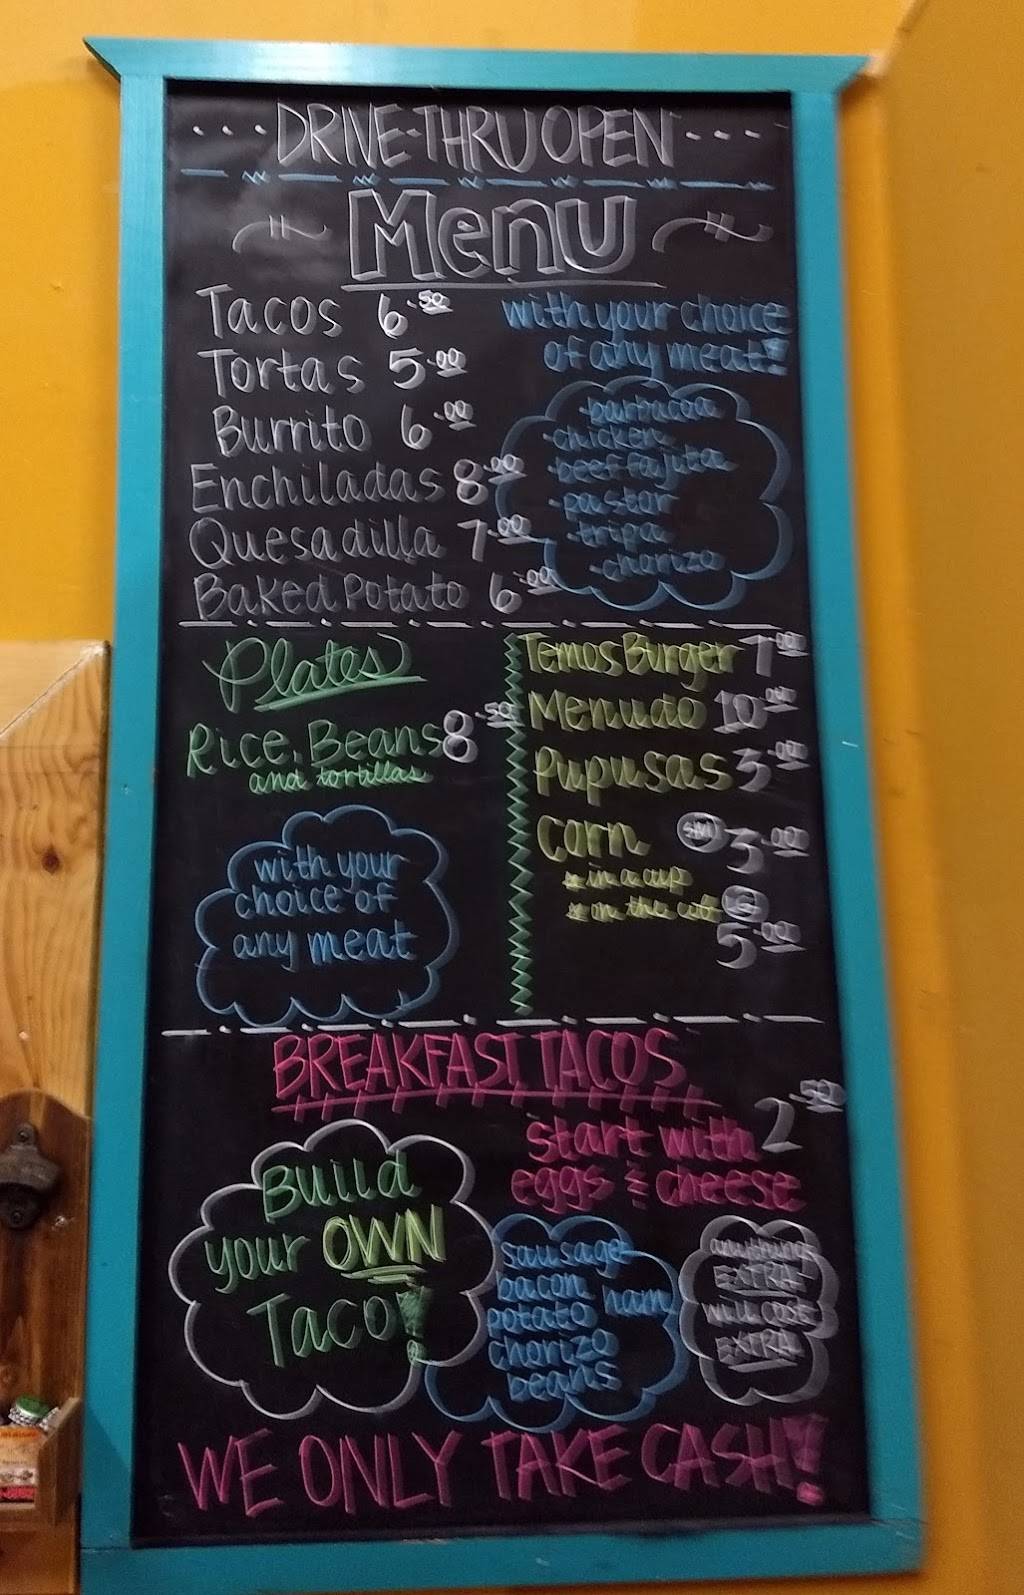 DRIVE-THRU OPEN
Menu
Tacos 6.50
Tortas 5.00
Burrito 6.00
Enchiladas 8.00
Quesadilla 7.00
Baked Potato 6.00
with your choice
of any meat!
barbacoa
chicken
beef fajita
pastor
tripa
chorizo
Plates
Rice, Beans 8.50
and tortillas
with your
choice of
any meat
Temos Burger 7.00
Menudo 10.00
Pupusas 3.00
Corn SM 3.00
in a cup
on the cob
5.00
BREAKFAST TACOS
2.50
start with
eggs n cheese
Build
your OWN
Taco!
sausage
bacon ham
potato
chorizo
beans
anythings
EXTRA
will cost
EXTRA
WE ONLY TAKE CASH!